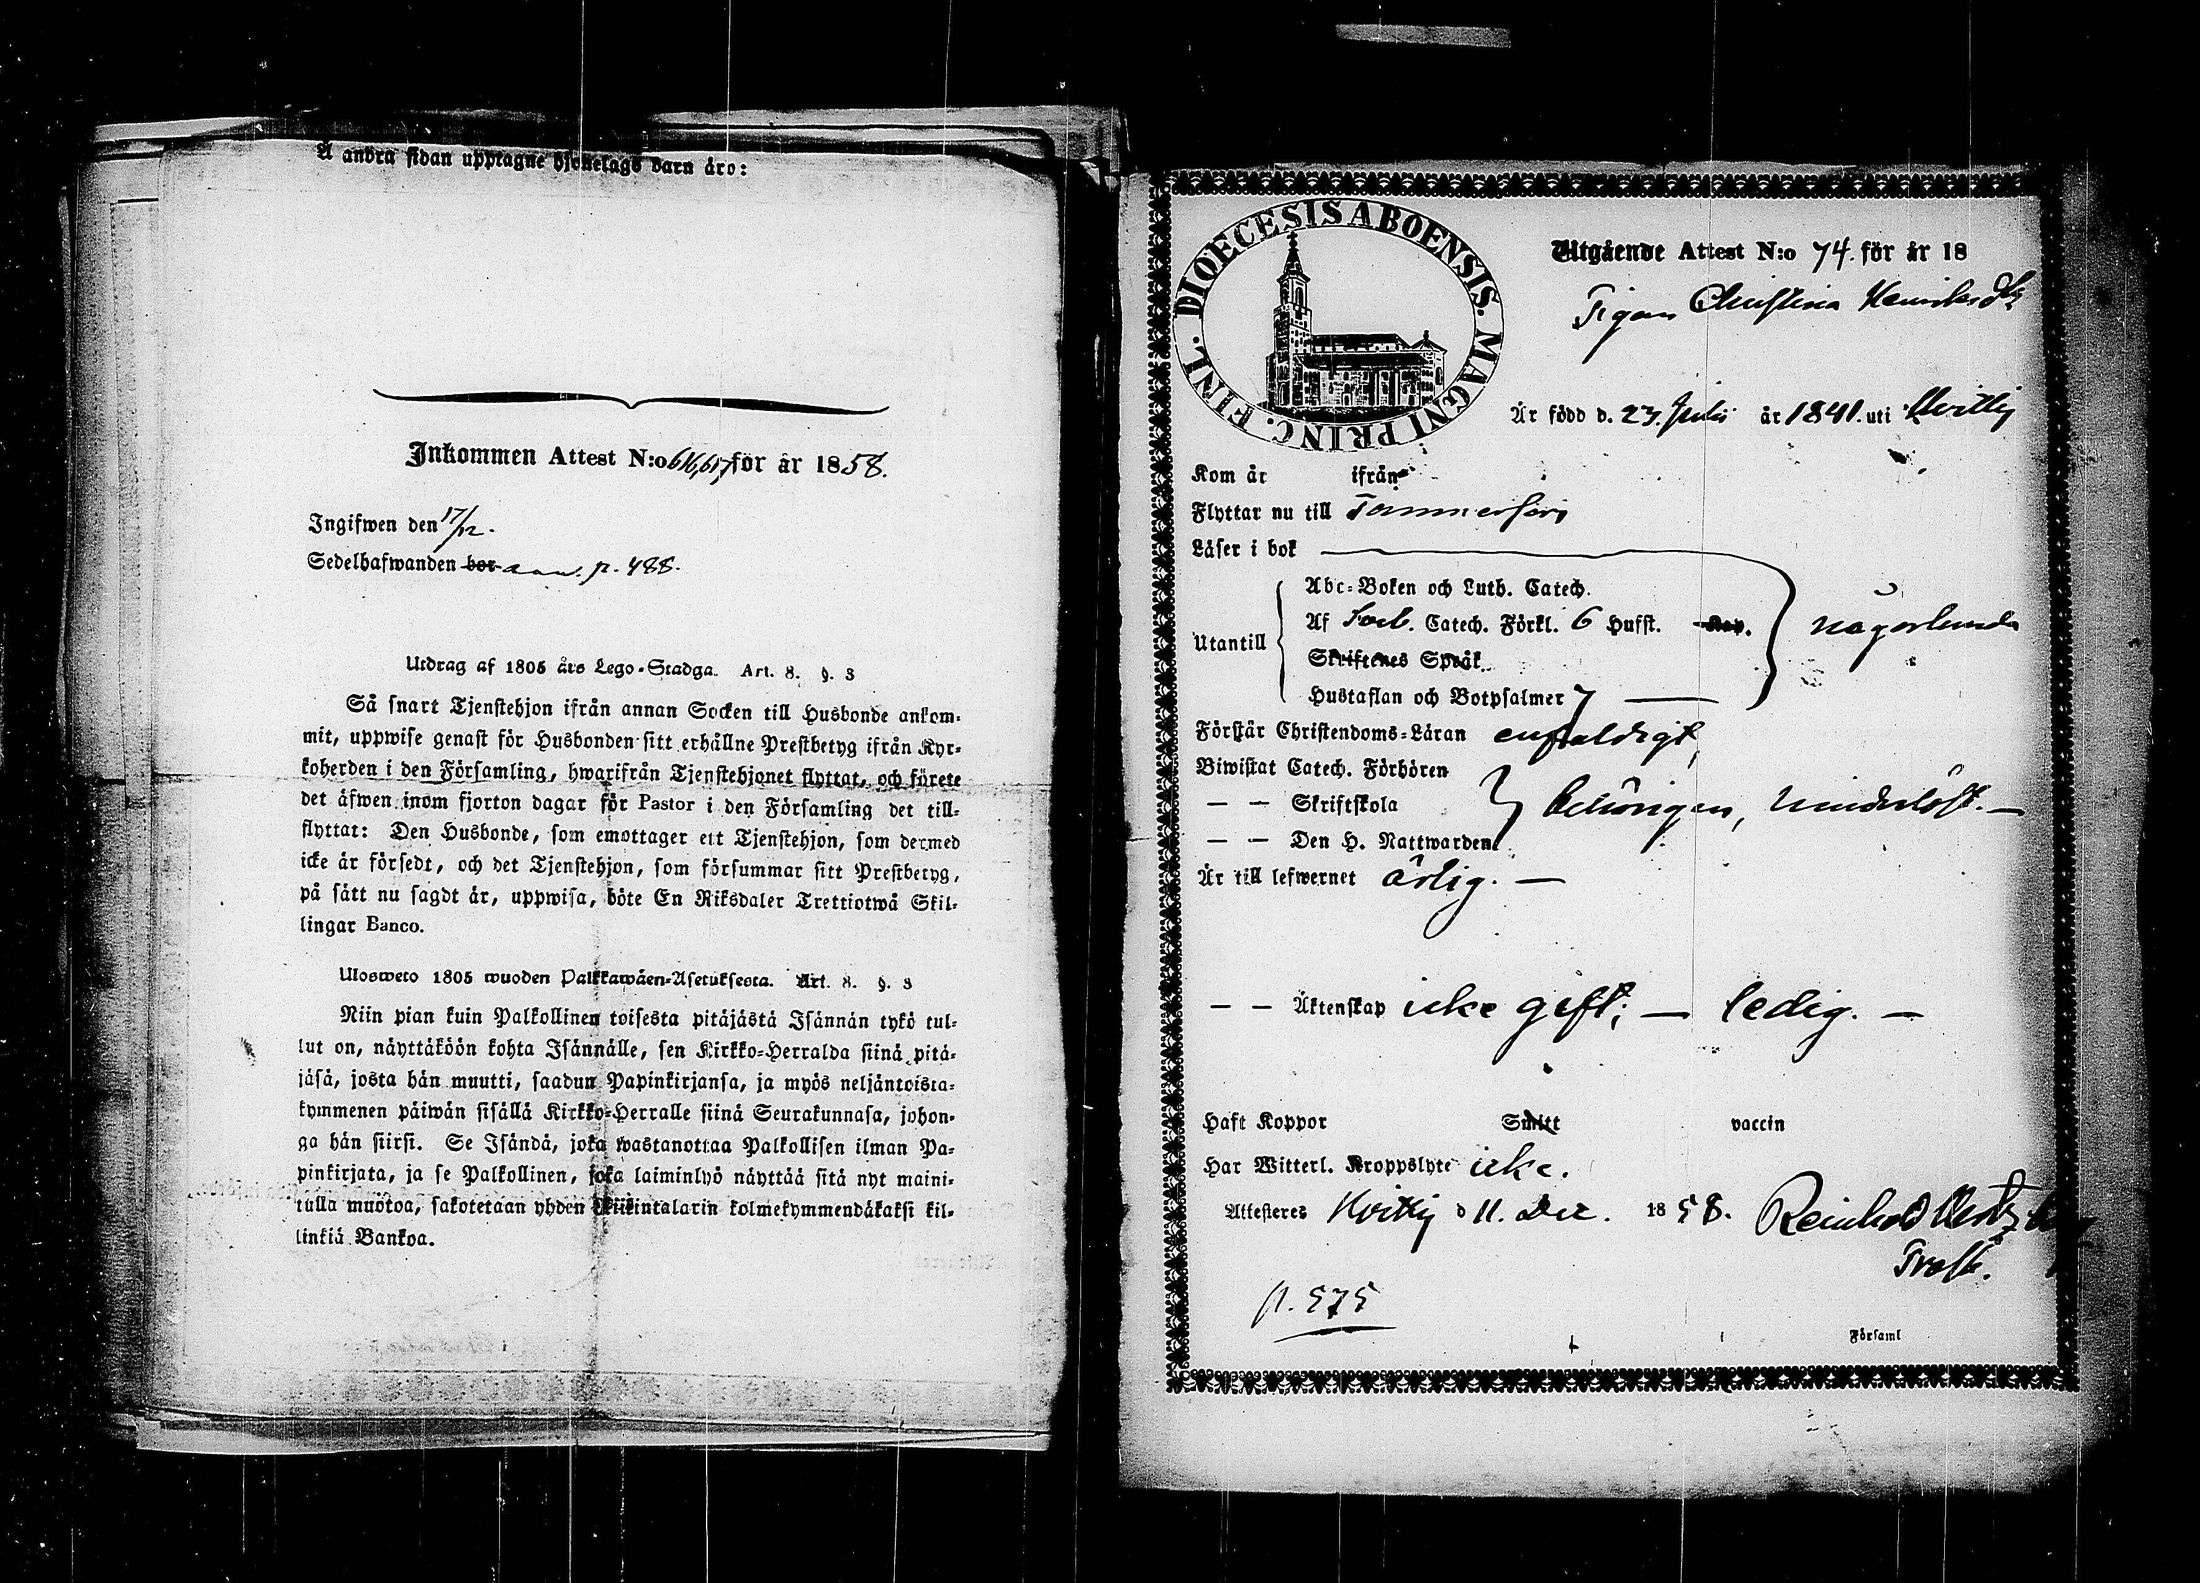 Å andra sidan upptagne oskelags barn äro:
Inkommen Attest N:o 616,617 för år 1858.
Ingifwen den 17/12.
Sedelhafwanden bor ann. p. 488.
Utdrag af 1805 års Lego-Stadga. Art. 8. §. 3
Så snart Tjenstehjon ifrån annan Socken till Husbonde ankom-
mit, uppwise genast för Husbonden sitt erhållne Prestbetyg ifrån Kyr-
koherden i den Församling, hwarifrån Tjenstehjonet flyttat, och förete
det äfwen inom fjorton dagar för Pastor i den Församling det till-
flyttat: Den Husbonde, som emottager ett Tjenstehjon, som dermed
icke är försedt, och det Tjenstehjon, som försummar sitt Prestbetyg,
på sätt nu sagdt är, uppwisa, böte En Riksdaler Trettiotwå Skil-
lingar Banco.
Ulosweto 1805 wuoden Palkkawäen-Asetuksesta. Art. 8. §. 3
Niin pian kuin Palkollinen toisesta pitäjästä Isännän tykö tul-
lut on, näyttäköön kohta Isännälle, sen Kirkko-Herralda siinä pitä-
jäsä, josta hän muutti, saadun Papinkirjansa, ja myös neljäntoista-
kymmenen päiwän sisällä Kirkko-Herralle siinä Seurakunnasa, johon-
ga hän siirsi. Se Isändä, joka wastanottaa Palkollisen ilman Pa-
pinkirjata, ja se Palkollinen, joka laiminlyö näyttää sitä nyt maini-
tulla muotoa, sakotetaan yhden Riikintalarin kolmekymmendäkaksi kil-
linkiä Bankoa.
DIOECESIS ABOENSIS. MAGNI PRINC. FINL.
Utgående Attest N:o 74. för år 18
Pigan Christina Henriksdtr
Är född d. 23. Julii år 1841. uti Hvittis
Kom år ifrån
Flyttar nu till Tammerfors
Läser i bok
Abc-Boken och Luth. Catech.
Utantill Af Sveb. Catech. Förkl. 6 Hufst. Kap. någorlunda
Skriftenes Språk
Hustaflan och Botpsalmer 7
Förstår Christendoms-Läran enfaldigt,
Biwistat Catech. Förhören
— — Skriftskola behörigen, hinderlöst. —
— — Den H. Nattwarden
Är till lefwernet ärlig. —
— — Äktenskap icke gift; — ledig. —
Haft Koppor Smitt vaccin
Har Witterl. Kroppslyte icke.
Attesteres Hvittis d 11. Dec. 1858. Reinhold Hertzberg
Prost.
p. 575
Församl